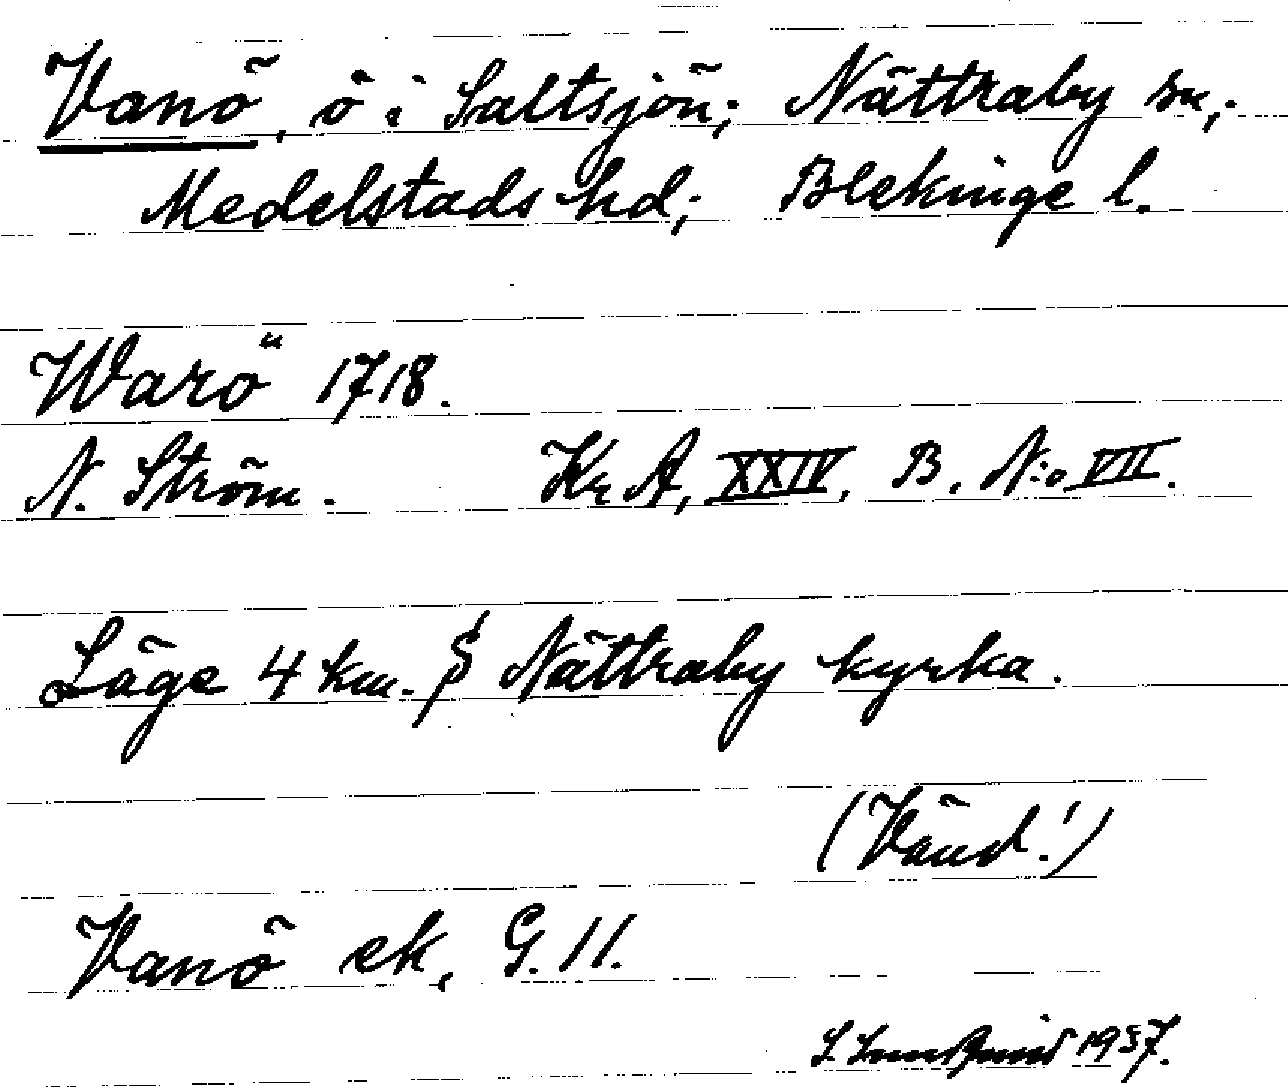 Vanö, ö i Saltsjön; Nättraby sn,
Medelstads hd; Blekinge l.
Warö 1718.
N. Ström. Kr A, XXIV, B. N:o VII.
Läge 4 km. S Nättraby kyrka.
(Vänd!)
Vanö ek. G. 11.
1937.